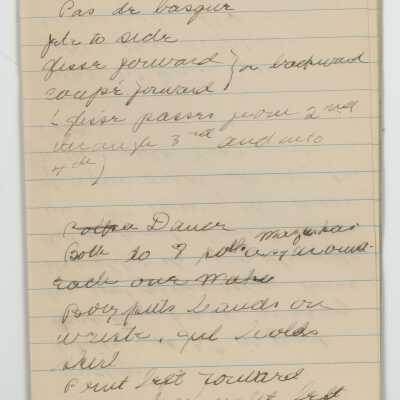 Pas de basque
jete to side
glisse forward } or backward
coupé forward
(glisse passes from 2nd
through 3rd and into
4th)
Polka Dance
Both do 7 polka mazurkas around
each one
Boy puts hands on
waist, girl holds
skirt
Point left forward
left